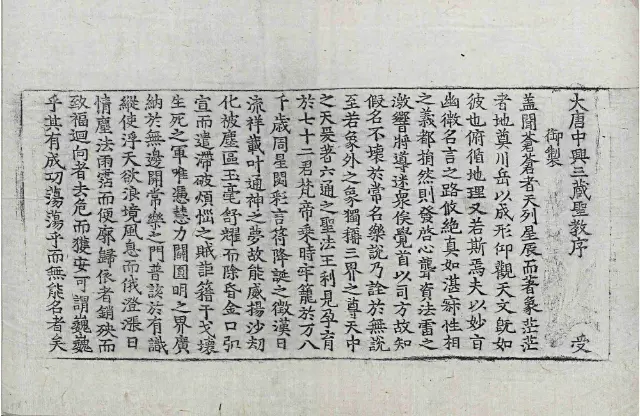 大唐中興三藏聖教序 受
御製
盖聞蒼蒼者天列星辰而著象茫茫
者地奠川岳以成形仰觀天文旣如
彼也俯循地理又若斯焉夫以妙旨
幽微名言之路攸絶真如湛寂性相
之義都捐然則發啓心聾資法雷之
激響將導迷衆俟覺首以司方故知
假名不壞於常名樂說乃詮於無說
至若象外之象獨稱三界之尊天中
之天爰著六通之聖法王利見孕育
於七十二君梵帝乘時牢籠於万八
千歲周星閟彩言符降誕之徵漢日
流祥載叶通神之夢故能威揚沙劫
化被塵區玉毫舒耀而除昏金口弘
宣而遣滯破煩惱之賊詎籍干戈壞
生死之軍唯憑慧力闢圓明之界廣
納於無邊開常樂之門普該於有識
縱使浮天欲浪境風息而俄澄漲日
情塵法雨霑而便廓歸依者銷殃而
致福迴向者去危而獲安可謂魏魏
乎其有成功蕩蕩乎而無能名者矣